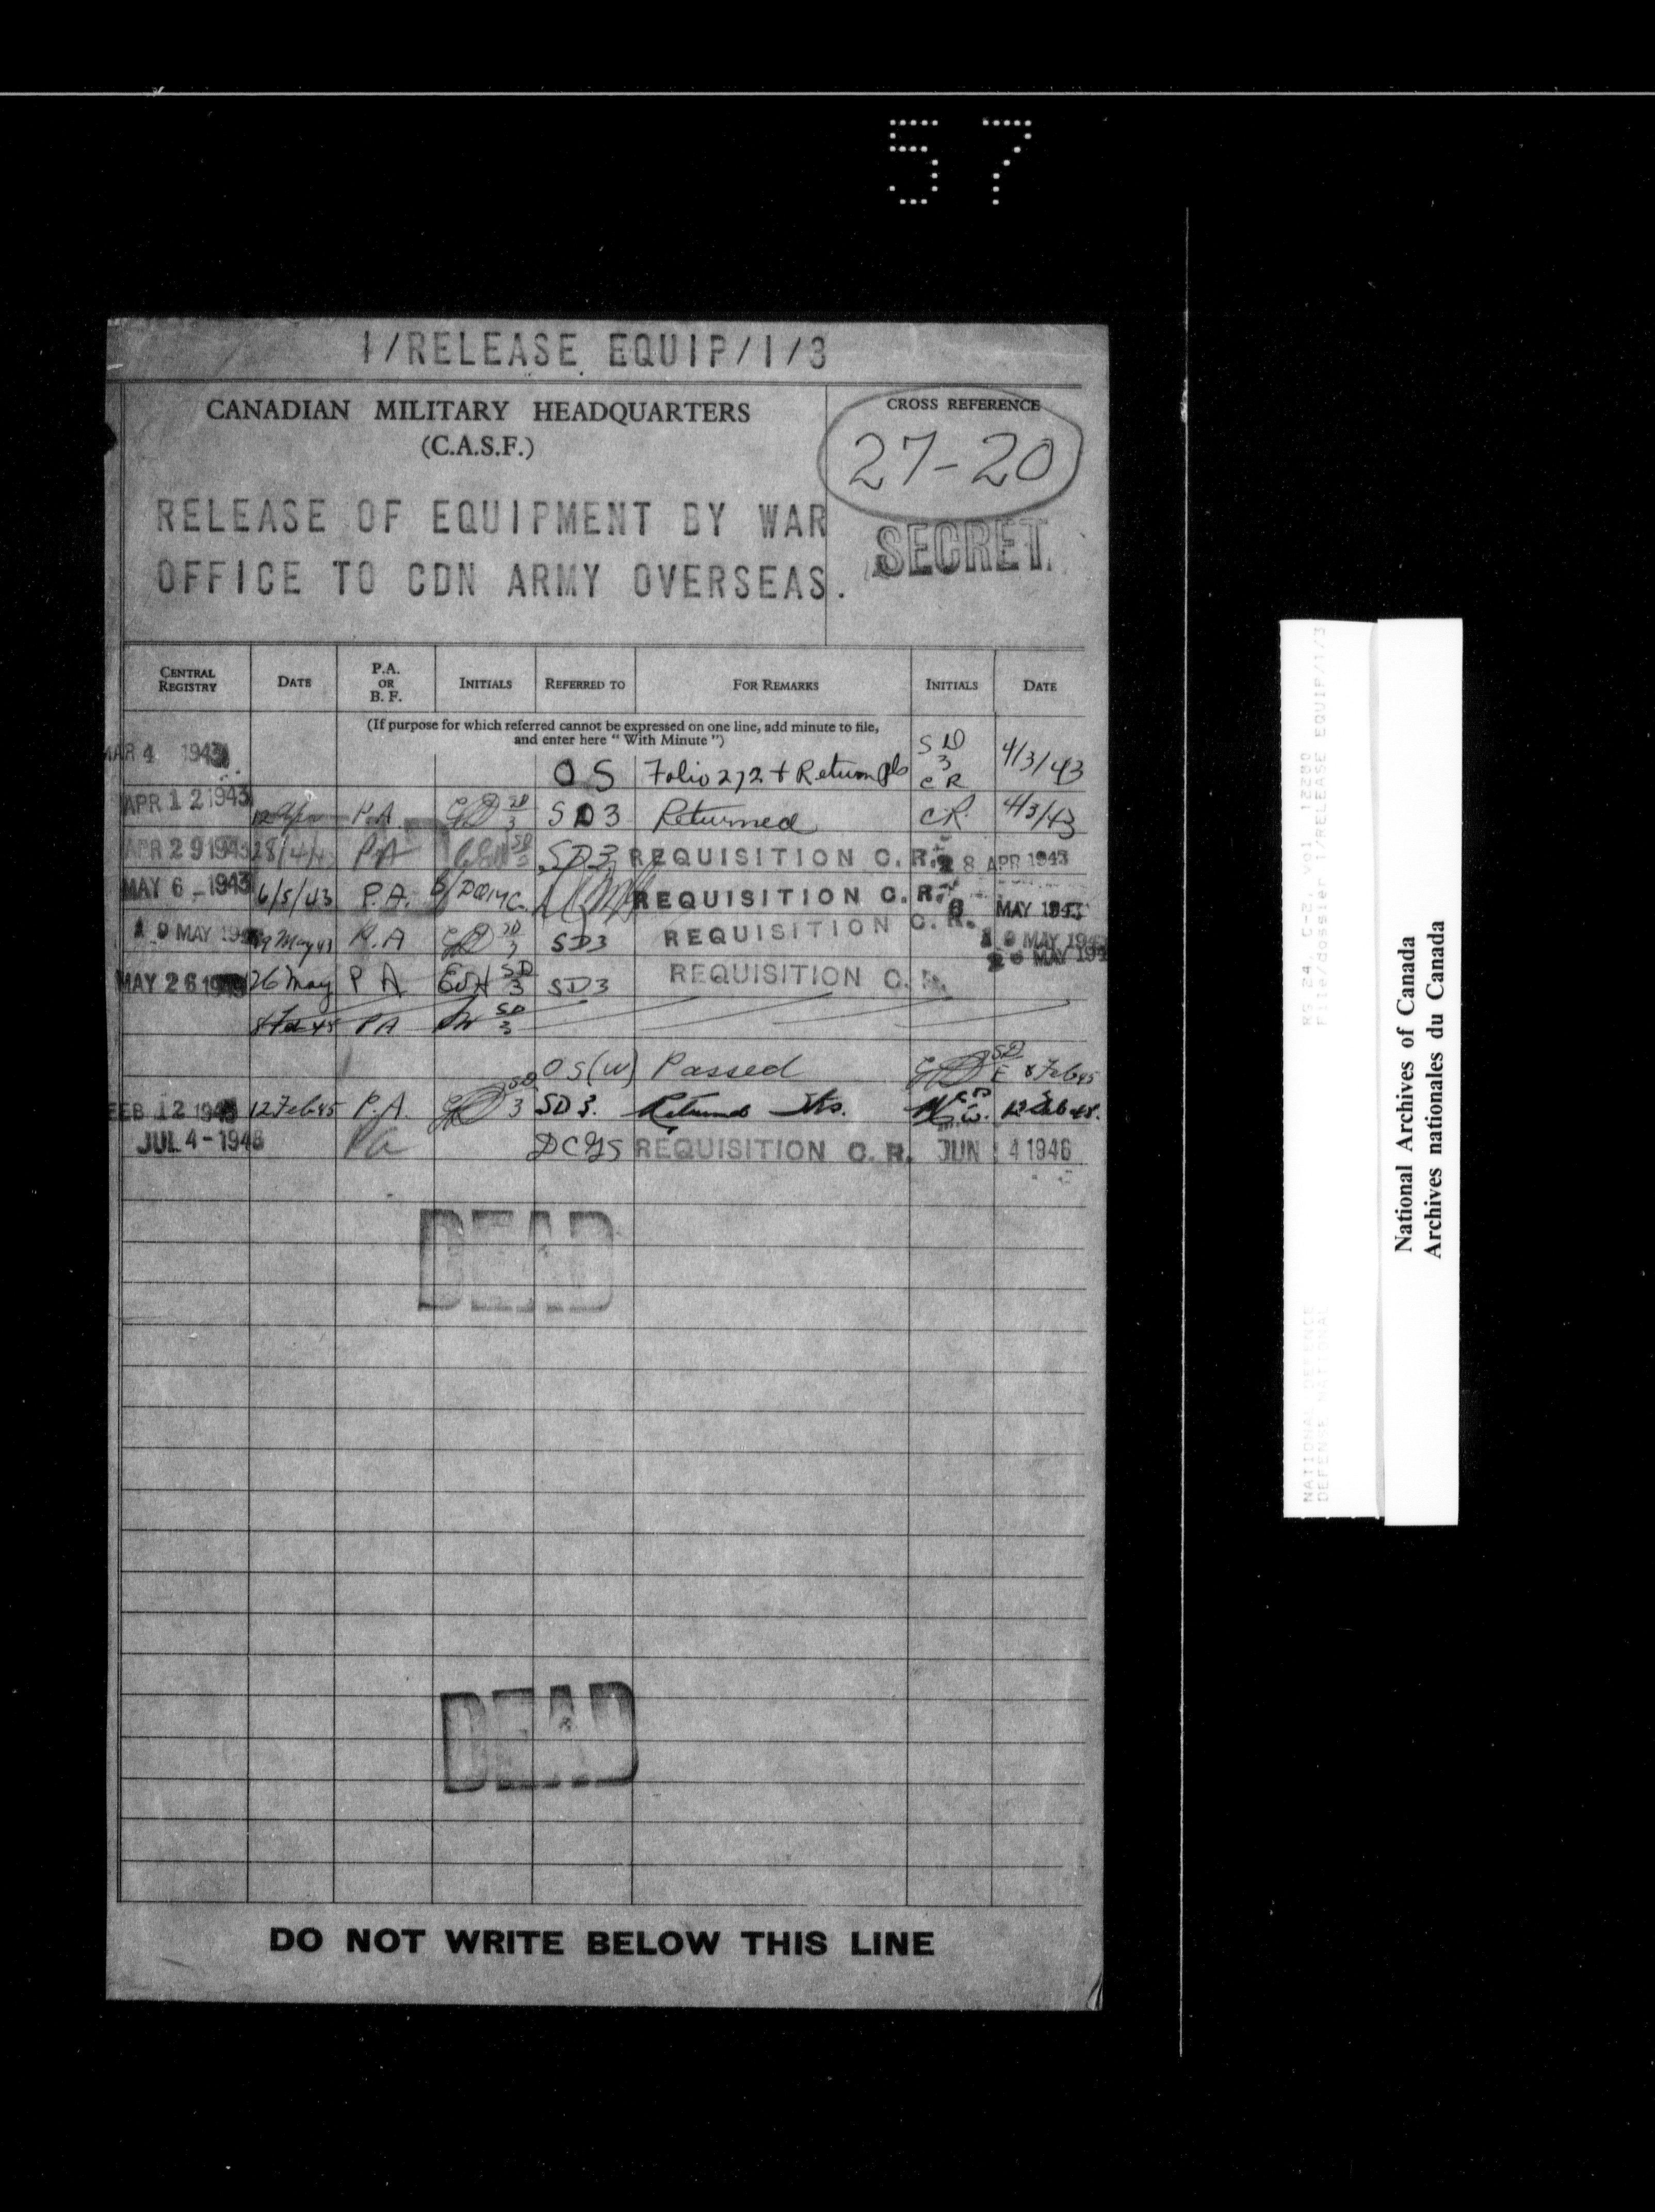 57
1/RELEASE EQUIP/1/3
CANADIAN MILITARY HEADQUARTERS
(C.A.S.F.)
CROSS REFERENCE
27-20
RELEASE OF EQUIPMENT BY WAR
OFFICE TO CDN ARMY OVERSEAS.
SECRET
CENTRAL REGISTRY DATE P.A. OR B. F. INITIALS REFERRED TO FOR REMARKS INITIALS DATE
(If purpose for which referred cannot be expressed on one line, add minute to file,
and enter here " With Minute ")
MAR 4 1943 OS Folio 2,2 + Return pls SD 3 CR 4/3/43
APR 12 1943 P.A. SD 3 SD3 Returned CR 4/3/43
APR 29 1943 28/4/43 PA SD3 REQUISITION C.R. 28 APR 1943
MAY 6 - 1943 6/5/43 P.A. REQUISITION C.R. 6 MAY 1943
19 MAY 1943 19 May 43 P.A SD 3 SD3 REQUISITION C.R. 19 MAY 1943
MAY 26 1943 26 May PA SD 3 SD3 REQUISITION C.R. MAY 194
8 Feb 45 PA SD 3
OS(W) Passed 8 Feb 45
FEB 12 1945 12 Feb 45 P.A. SD 3 SD3. Returned
JUL 4 - 1946 Pa DCGS REQUISITION C.R. JUN 4 1946
DEAD
DEAD
DO NOT WRITE BELOW THIS LINE
NATIONAL DEFENCE RG 24, C-2, vol 12280
DEFENSE NATIONAL File/dossier 1/RELEASE EQUIP/1/3
National Archives of Canada
Archives nationales du Canada